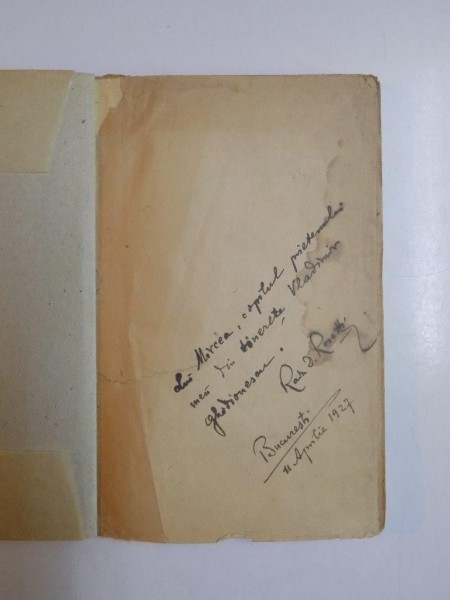 Lui Mircea, copilul prietenului
meu din tinerețe Vladimir
Ghidionescu.
Radu D. Rosetti
București
11 Aprilie 1927